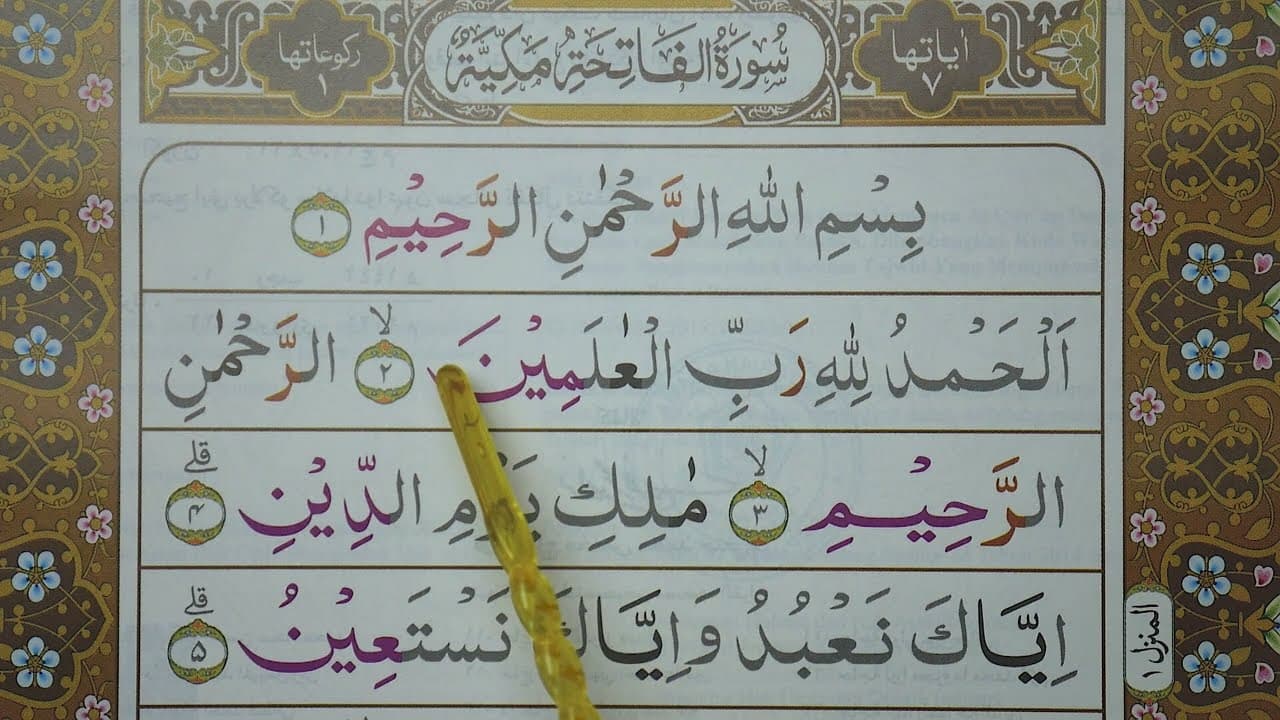 اٰیاتها ٧ سُوْرَةُ الْفَاتِحَةِ مَكِّیَّةٌ ركوعاتها ١
بِسْمِ اللّٰهِ الرَّحْمٰنِ الرَّحِیْمِ ١
اَلْحَمْدُ لِلّٰهِ رَبِّ الْعٰلَمِیْنَ ۙ ٢ الرَّحْمٰنِ
الرَّحِیْمِ ۙ ٣ مٰلِكِ یَوْمِ الدِّیْنِ ؕقلے ۴
اِیَّاكَ نَعْبُدُ وَاِیَّاكَ نَسْتَعِیْنُ قلے ۵
المنزل ١